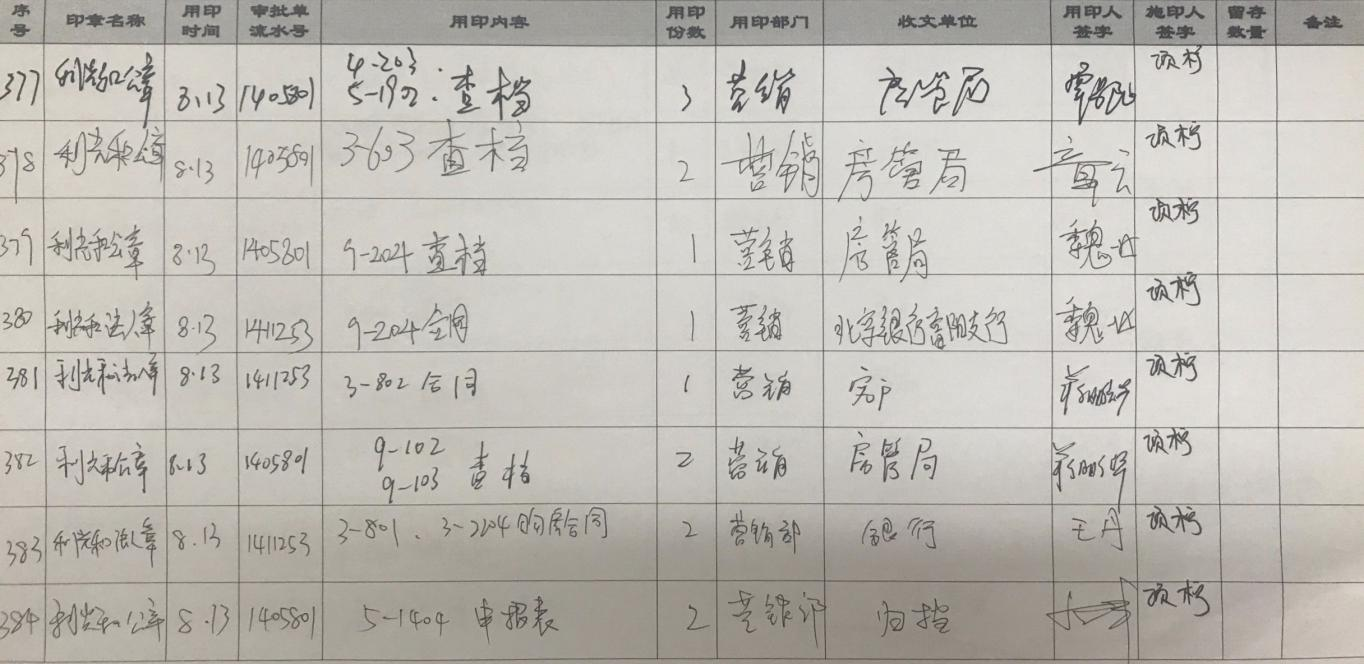 序号 印章名称 用印时间 审批单流水号 用印内容 用印份数 用印部门 收文单位 用印人签字 施印人签字 留存数量 备注
377 利光和公章 8.13 1405801 4-203 5-1902:查档 3 营销 房管局 项杉
378 利光和公章 8.13 1405801 3-603 查档 2 营销 房管局 章云 项杉
379 利光和公章 8.13 1405801 9-204 查档 1 营销 房管局 魏 项杉
380 利光和法人章 8.13 1411253 9-204合同 1 营销 北京银行阜阳支行 魏 项杉
381 利光和法人章 8.13 1411253 3-802 合同 1 营销 客户 项杉
382 利光和公章 8.13 1405801 9-102 9-103 查档 2 营销 房管局 项杉
383 利光和法人章 8.13 1411253 3-801、3-2204购房合同 2 营销部 银行 王丹 项杉
384 利光和公章 8.13 1405801 5-1404 申报表 2 营销部 归档 项杉